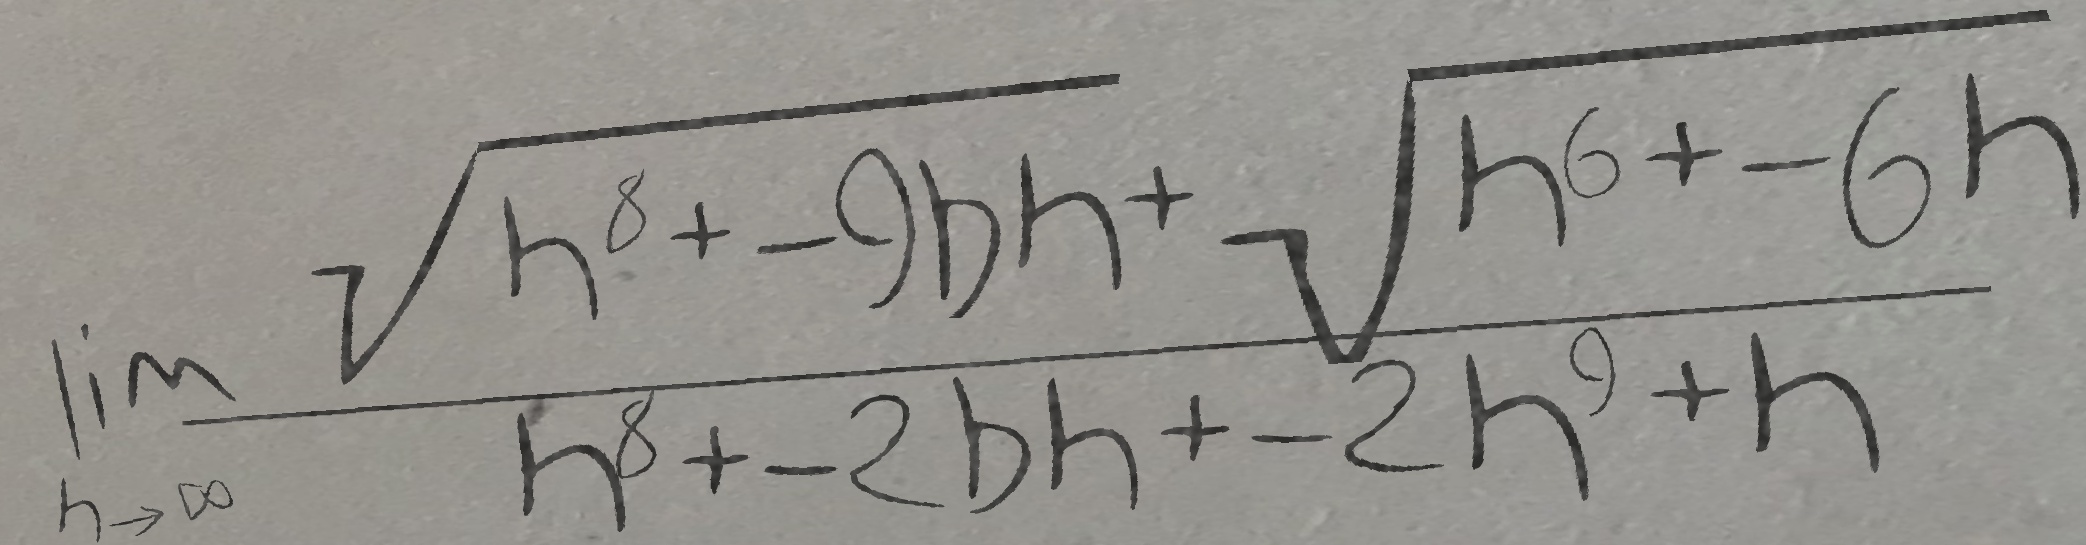 lim h→∞ (√(h^8 + -9bh) + √(h^6 + -6h)) / (h^8 + -2bh + -2h^9 + h)